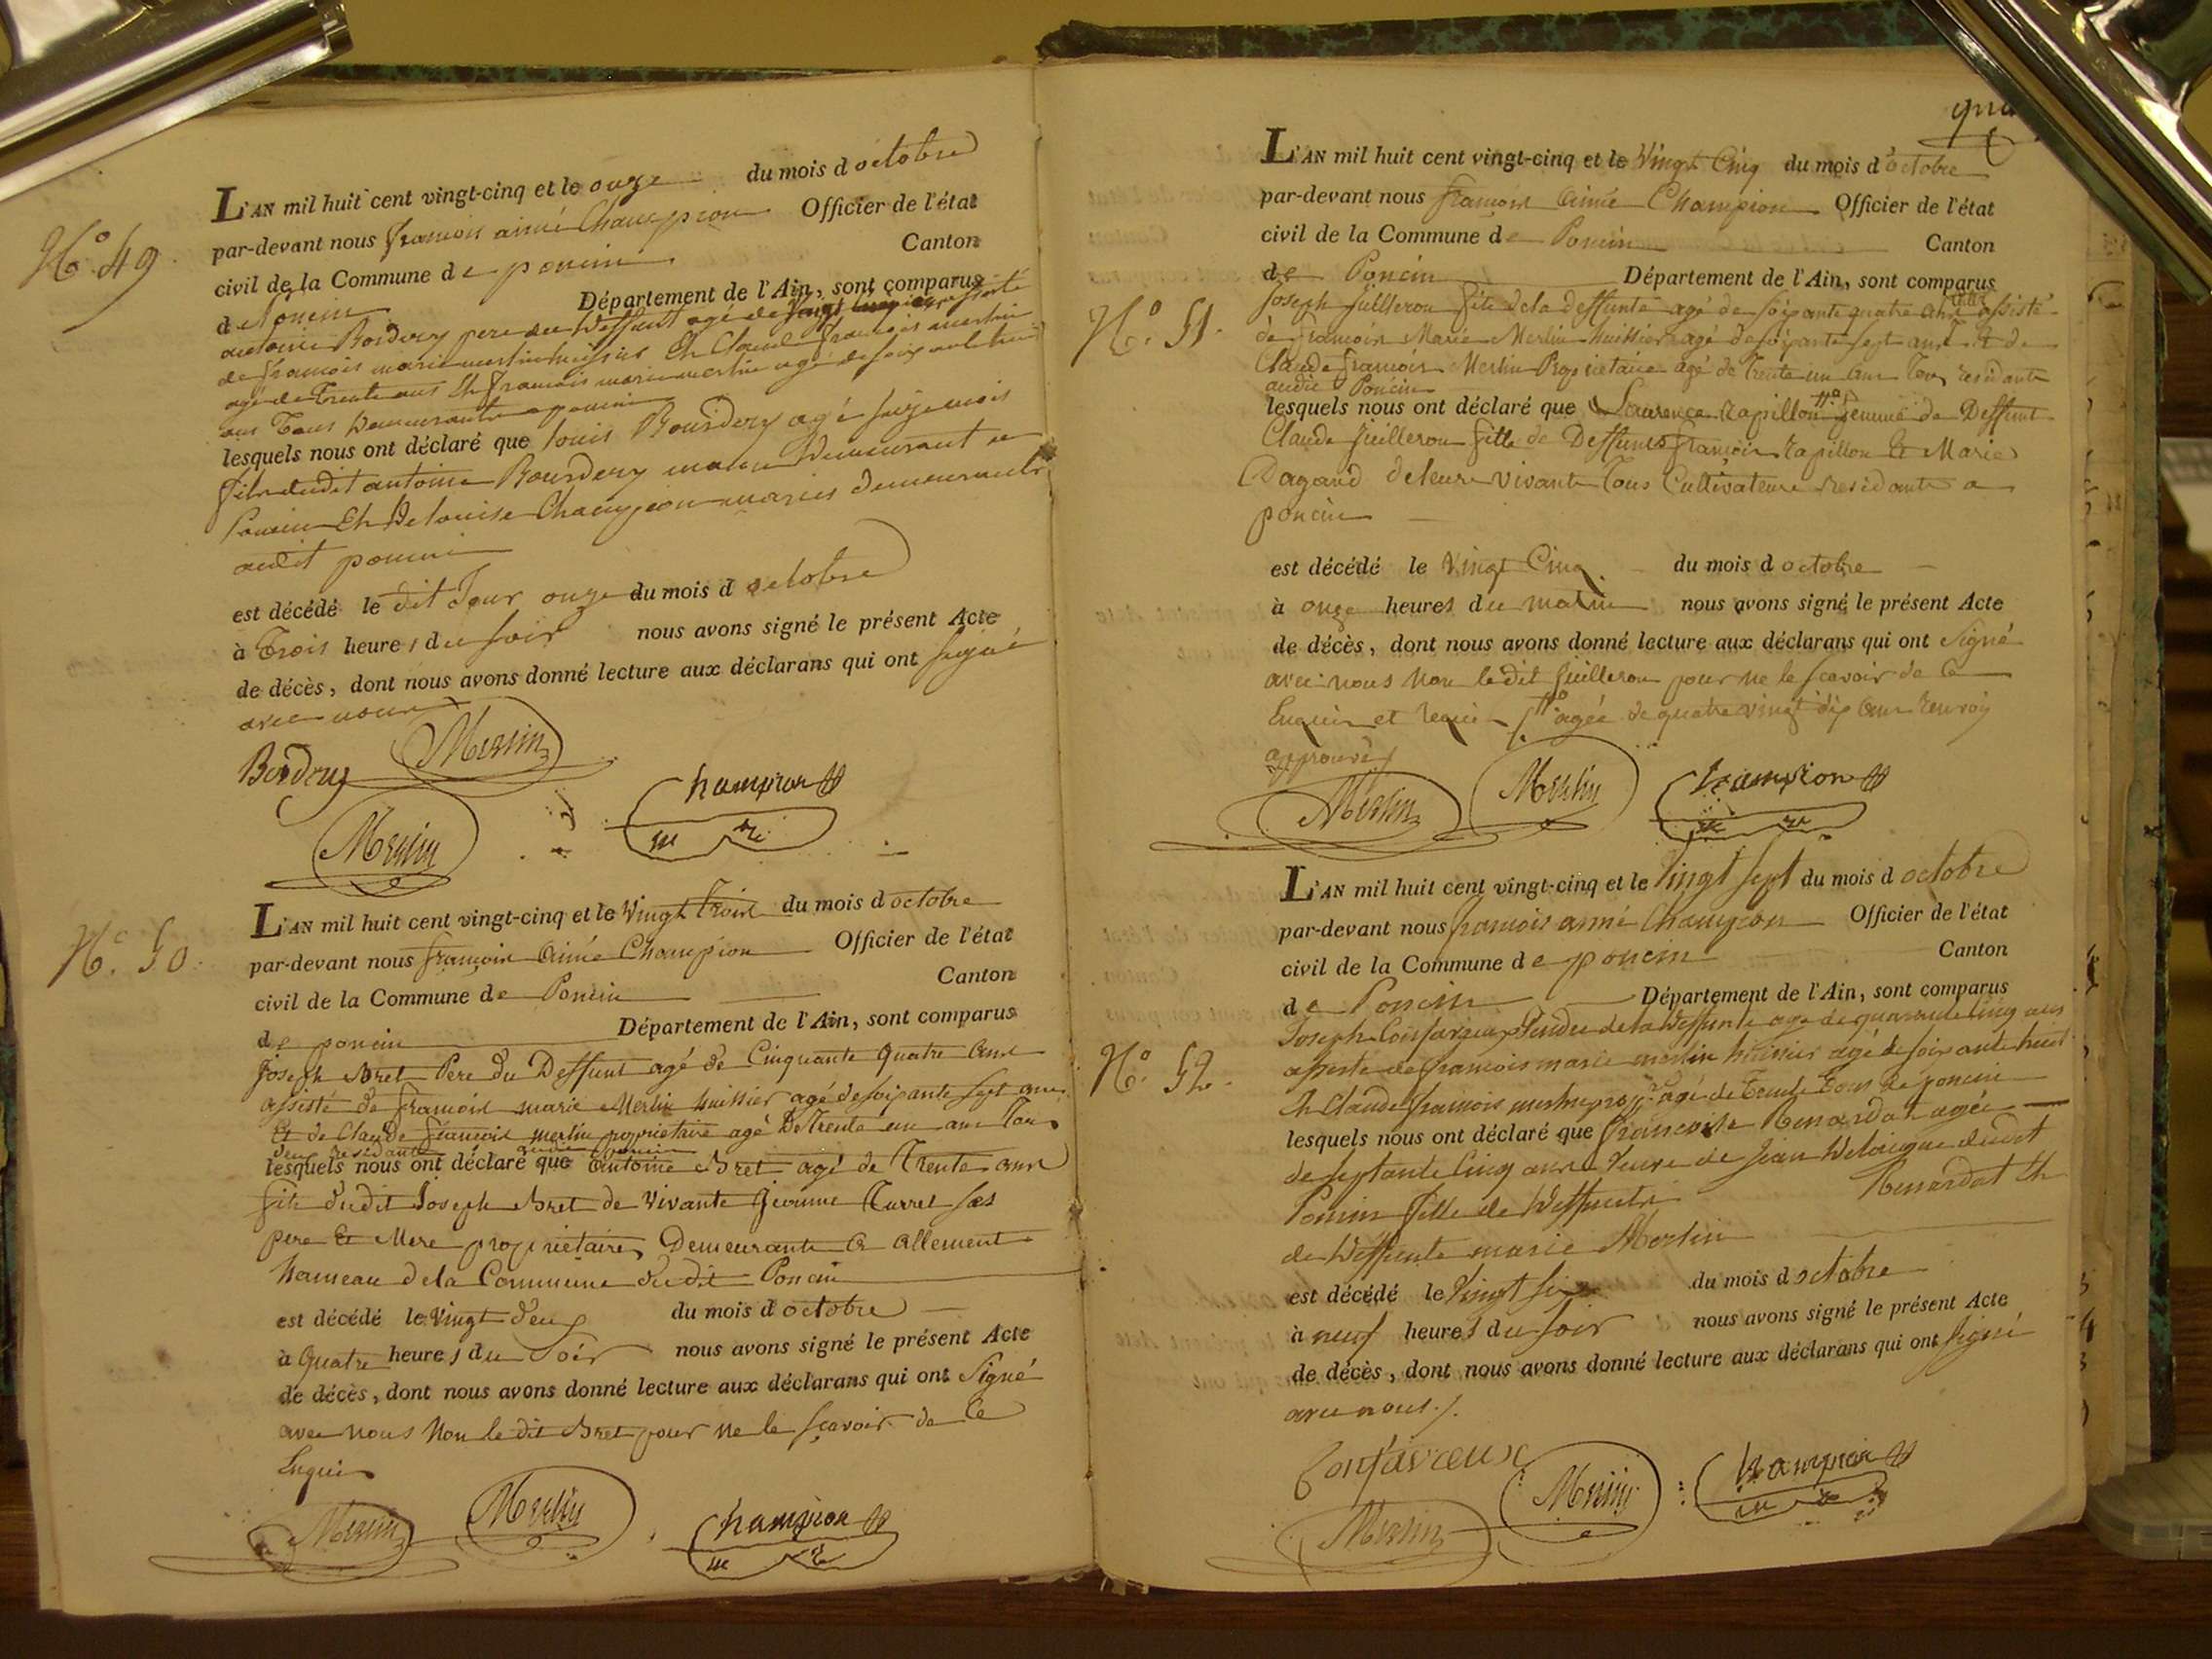 N.o 49.
L'AN mil huit cent vingt-cinq et le onze du mois d octobre
par-devant nous françois aimé Champion Officier de l'état
civil de la Commune de poncin Canton
d Poncin Département de l'Ain, sont comparus
antoine Bordery pere du deffunt agé de assisté
de françois marie merlin huissier Et Claude françois merlin
agé de Trente ans Et françois marie merlin agé de soixante
ans Tous demeurants a poncin
lesquels nous ont déclaré que louis Bourdery agé seize mois
fils dudit antoine Bourdery demeurant a
Poncin Et de louise Champion mariés demeurants
audit poncin
est décédé le dit Jour onze du mois d octobre
à Trois heures du soir nous avons signé le présent Acte
de décès, dont nous avons donné lecture aux déclarans qui ont signé
avec nous
Bordery Merlin
Merlin Champion
N.o 50.
L'AN mil huit cent vingt-cinq et le Vingt Trois du mois d octobre
par-devant nous françois Aimé Champion Officier de l'état
civil de la Commune de Poncin Canton
de poncin Département de l'Ain, sont comparus
joseph Bret Pere du Deffunt agé de Cinquante quatre ans
assisté de françois marie Merlin huissier agé de soixante sept ans
Et de Claude françois merlin propriétaire agé De Trente un ans Tous
deux residants audit poncin
lesquels nous ont déclaré que antoine Bret agé de Trente ans
fils dudit Joseph Bret de vivante Jeanne Turrel ses
pere Et Mere proprietaires Demeurants a allement
hameau dela Commune dudit Poncin
est décédé le Vingt deux du mois d octobre
à Quatre heures du Soir nous avons signé le présent Acte
de décès, dont nous avons donné lecture aux déclarans qui ont Signé
avec nous Non le dit Bret pour ne le sçavoir de Ce
Enquis
Merlin Merlin Champion
N.o 51.
L'AN mil huit cent vingt-cinq et le Vingt Cinq du mois d'octobre
par-devant nous françois Aimé Champion Officier de l'état
civil de la Commune de Poncin Canton
de Poncin Département de l'Ain, sont comparus
Joseph Juilleron fils dela deffunte agé de soixante quatre ans assisté
de françois Marie Merlin huissier agé de soixante sept ans Et de
Claude françois Merlin Propriétaire agé de Trente un ans Tous residants
audit Poncin
lesquels nous ont déclaré que Laurence Rapillon femme de Deffunt
Claude Juilleron fille de Deffunts françois Rapillon Et Marie
Dagand deleurs vivants Tous Cultivateurs residants a
poncin
est décédé le Vingt Cinq du mois d octobre
à onze heures du matin nous avons signé le présent Acte
de décès, dont nous avons donné lecture aux déclarans qui ont Signé
avec nous Non le dit Juilleron pour ne le sçavoir de Ce
Enquis et requis agée de quatre vingt dix ans renvoy
approuvé
Merlin Merlin Champion
N.o 52.
L'AN mil huit cent vingt-cinq et le Vingt sept du mois d octobre
par-devant nous françois aimé Champion Officier de l'état
civil de la Commune de poncin Canton
de Poncin Département de l'Ain, sont comparus
Joseph Gendre de la deffunte agé de quarante Cinq ans
assisté de françois marie merlin huissier agé de soixante huit
Et Claude françois merlin prop.re agé de Trente Tous de poncin
lesquels nous ont déclaré que françoise Renardat agée
de septante Cinq ans Veuve de Jean Delaigue dudit
Poncin fille de deffuncts Renardat Et
de deffunte marie Merlin
est décédé le Vingt six du mois d octobre
à neuf heures du soir nous avons signé le présent Acte
de décès, dont nous avons donné lecture aux déclarans qui ont signé
avec nous.
Merlin Champion
Merlin